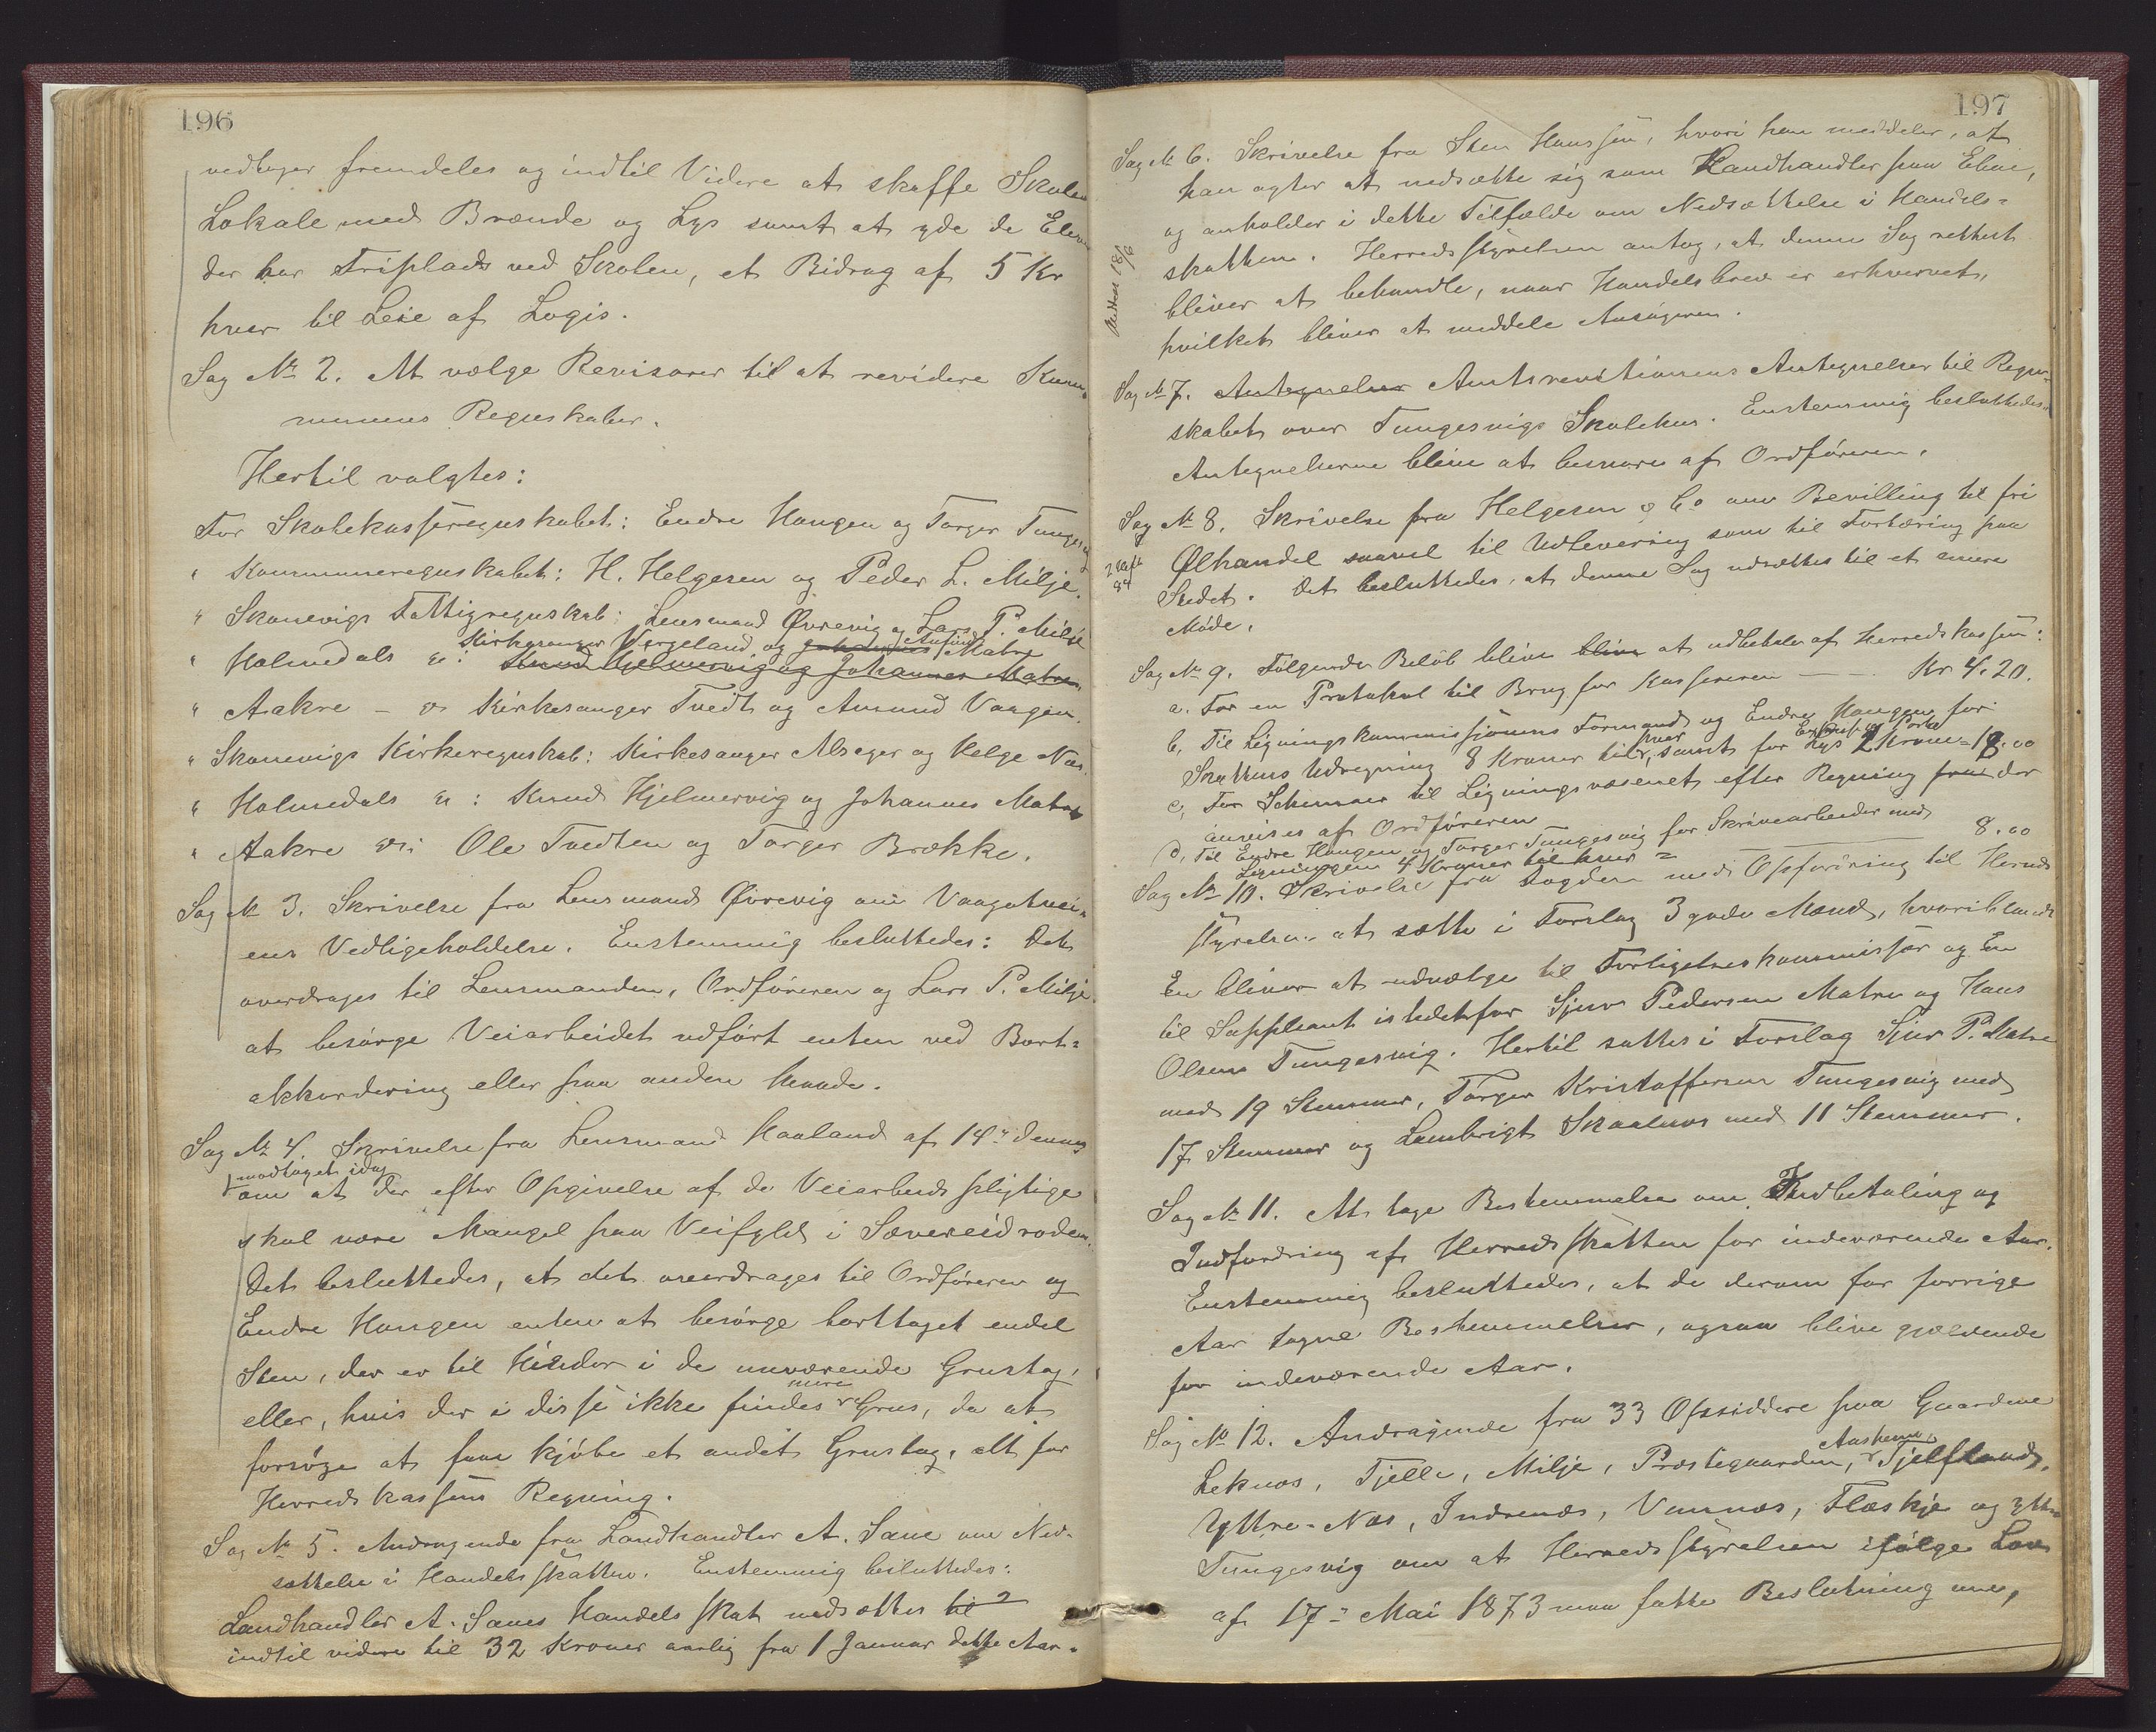 196
vedtager fremdeles og indtil Videre at skaffe Skolen
Lokale med Brænde og Lys samt at yde de Elever
der har Friplads ved Skolen, et Bidrag af 5 Kr
hver til Leie af Logis.
Sag № 2. At vælge Revisorer til at revidere Kom-
munens Regnskaber.
Hertil valgtes:
For Skolekasseregnskabet: Endre Haugen og Torger Tungesvig
" Kommuneregnskabet: H. Helgesen og Peder L. Milje.
" Skonevigs Fattigregnskab: Lensmand Øvrevig og Lars P. Milje
Kirkesanger Vergeland og Johannes Anfind Matre
" Holmedals " : Knud Hjelmervig og Johannes Matre
" Aakre - " Kirkesanger Tvedt og Amund Vaagen.
" Skonevigs Kirkeregnskab: Kirkesanger Alsager og Helge Næs.
" Holmedals " : Knud Hjelmervig og Johannes Matre
" Aakre " : Ole Tvedten og Torger Brække.
Sag № 3. Skrivelse fra Lensmand Øvrevig om Vaagatvei-
ens Vedligeholdelse. Enstemmig besluttedes: Det
overdrages til Lensmanden, Ordføreren og Lars P. Milje
at besørge Veiarbeidet udført enten ved Bort-
akkordering eller paa anden Maade.
Sag № 4. Skrivelse fra Lensmand Haaland af 14de dennes
modtaget idag
om at der efter Opgivelse af de Veiarbeidspligtige
skal være Mangel paa Veifyld i Sævereidroden.
Det besluttedes, at det overdrages til Ordføreren og
Endre Haugen enten at besørge borttaget endel
Sten, der er til Hinder i de nuværende Grustag,
mere
eller, hvis der i disse ikke findes Grus, da at
forsøge at faa kjøbe et andet Grustag, alt for
Herredskassens Regning.
Sag № 5. Andragende fra Landhandler A. Sane om Ned-
sættelse i Handelsskatten. Enstemmig besluttedes:
Landhandler A. Sanes Handelsskat nedsættes til
indtil videre til 32 Kroner aarlig fra 1 Januar dette Aar.
197
Sag № 6. Skrivelse fra Sten Hanssen, hvori han meddeler, at
han agter at nedsætte sig som Landhandler paa Ebne,
og anholder i dette Tilfælde om Nedsættelse i Handels-
skatten. Herredsstyrelsen antog, at denne Sag rettest
bliver at behandle, naar Handelsbrev er erhvervet,
hvilket bliver at meddele Ansøgeren.
Meddelt 18/6
Sag № 7. Antegnelser Amtsrevisionens Antegnelser til Regn-
skabet over Tungesvigs Skolehus. Enstemmig besluttedes:
Antegnelserne blive at besvare af Ordføreren.
Sag № 8. Skrivelse fra Helgesen & Co om Bevilling til fri
Ølhandel saavel til Udlevering som til Fortæring paa
Stedet. Det besluttedes, at denne Sag udsættes til et senere
Møde.
Sag № 9. Følgende Beløb blive blive at udbetale af Herredskassen:
a. For en Protokol til Brug for Kassereren — Kr 4.20.
b, Til Ligningskommissionens Formand og Endre Haugen for
Skattens Udregning 8 Kroner til hver, samt for Lys 2 Kroner = 18.00
c, For Schemaer til Ligningsvæsenet efter Regning fra der
anvises af Ordføreren
d, Til Endre Haugen og Torger Tungesvig for Skrivearbeider med
Ligningen 4 Kroner til hver = 8.00
Sag № 10. Skrivelse fra Fogden med Opfordring til Herreds
styrelsen at sætte i Forslag 3 gode Mænd, hvoriblandt
En bliver at udvælge til Forligelseskommissær og En
til Suppleant istedetfor Sjur Pedersen Matre og Hans
Olsen Tungesvig. Hertil sattes i Forslag Sjur P. Matre
med 19 Stemmer, Torger Kristoffersen Tungesvig med
17 Stemmer og Lambrigt Skaalnes med 11 Stemmer.
Sag № 11. At tage Bestemmelse om Indbetaling og
Indfordring af Herredsskatten for indeværende Aar.
Enstemmig besluttedes, at de derom for forrige
Aar tagne Bestemmelser, ogsaa blive gjældende
for indeværende Aar.
Sag № 12. Andragende fra 33 Opsiddere paa Gaardene
Leknæs, Tjelle, Milje, Præstegaarden, Tjelflaat,
Yttre-Næs, Indrenæs, Vannæs, Flæskje og yttre
Tungesvig om at Herredsstyrelsen ifølge Lov
af 17de Mai 1873 maa fatte Beslutning om,